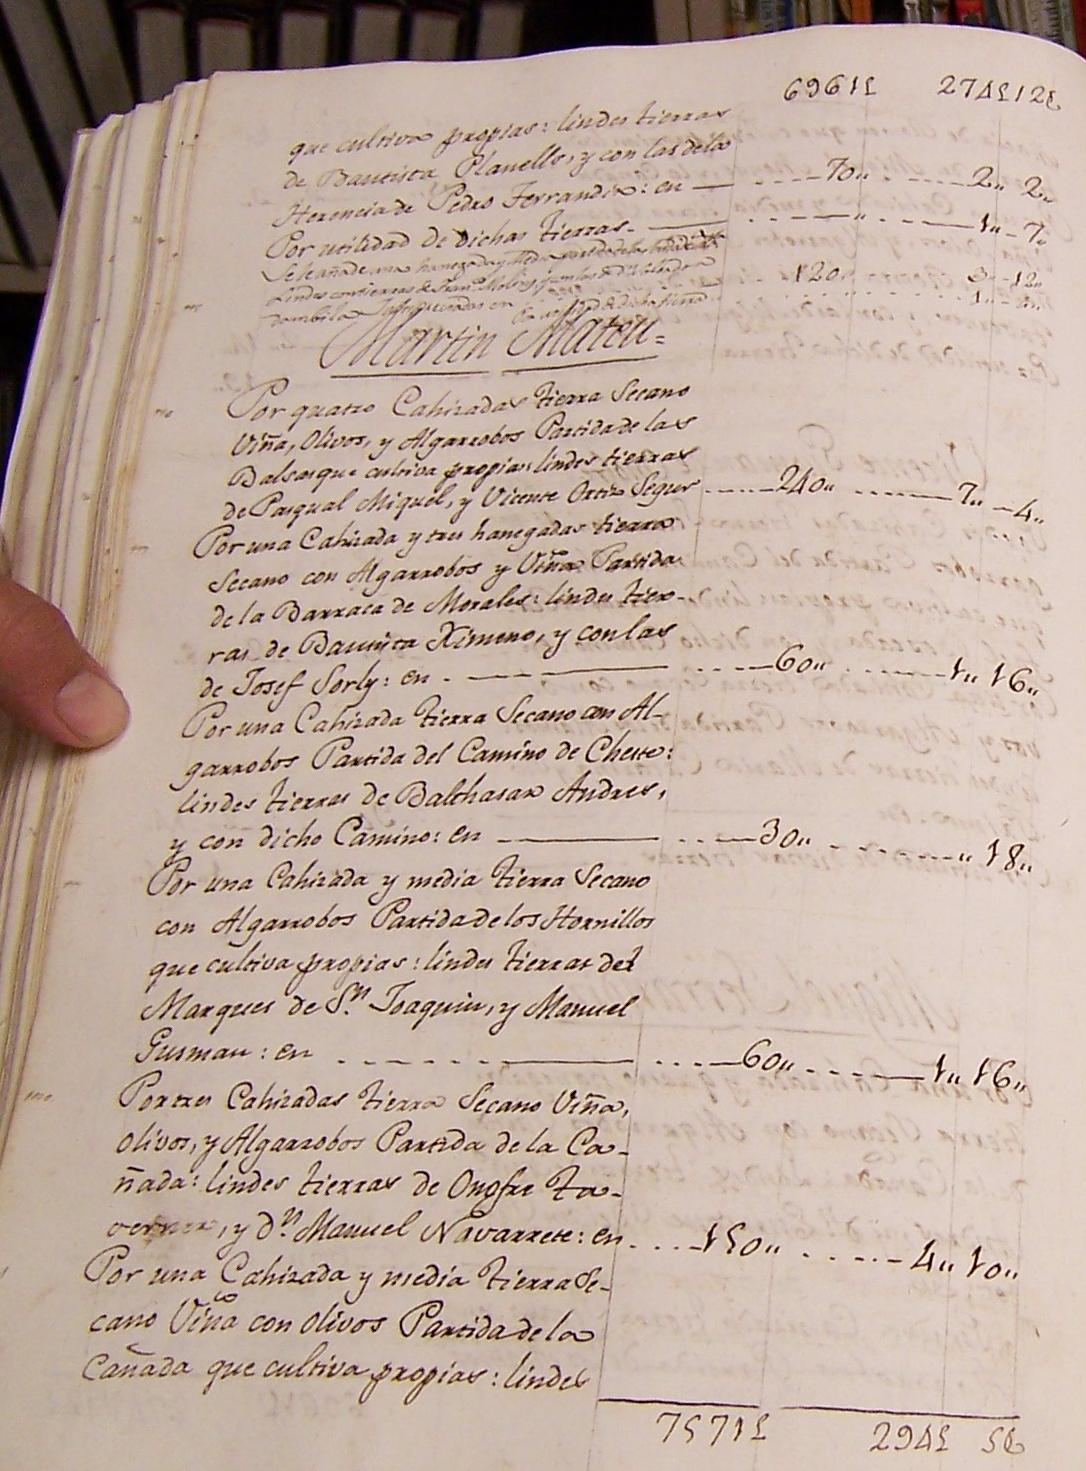 6961£ 274£12s
que cultiva propias: lindes tierras
de Bautista Planells, y con las dela
Herencia de Pedro Ferrandis: en 70,, 2,, 2,,
Por utilidad de dichas tierras 1,, 7,,
Se le añade una hanegada y
Lindes con tierras de
en 120,, 3,, 12,,
Martin Mateu=
Por quatro Cahizadas tierra Secano
Viña, Olivos, y Algarrobos Partida de las
Balsas que cultiva propias: lindes tierras
de Pasqual Miquel, y Vicente Ortiz Segur 240,, 7,, 4,,
Por una Cahizada y tres hanegadas tierra
Secano con Algarrobos y Viña Partida
de la Barraca de Morales: lindes tier-
ras de Bautista Ximeno, y con las
de Josef Sorly: en 60,, 1,, 16,,
Por una Cahizada tierra Secano con Al-
garrobos Partida del Camino de Cheste:
lindes tierras de Balthasar Andres,
y con dicho Camino: en 30,, ,, 18,,
Por una Cahizada y media tierra Secano
con Algarrobos Partida de los Hornillos
que cultiva propias: lindes tierras del
Marques de Sn. Joaquin, y Manuel
Gusman: en 60,, 1,, 16,,
Por tres Cahizadas tierra Secano Viña,
Olivos, y Algarrobos Partida de la Ca-
ñada: lindes tierras de Onofre Ta-
verner, y Dn. Manuel Navarrete: en 150,, 4,, 10,,
Por una Cahizada y media tierra Se-
cano Viña con Olivos Partida de la
Cañada que cultiva propias: lindes
7571£ 294£ 5s